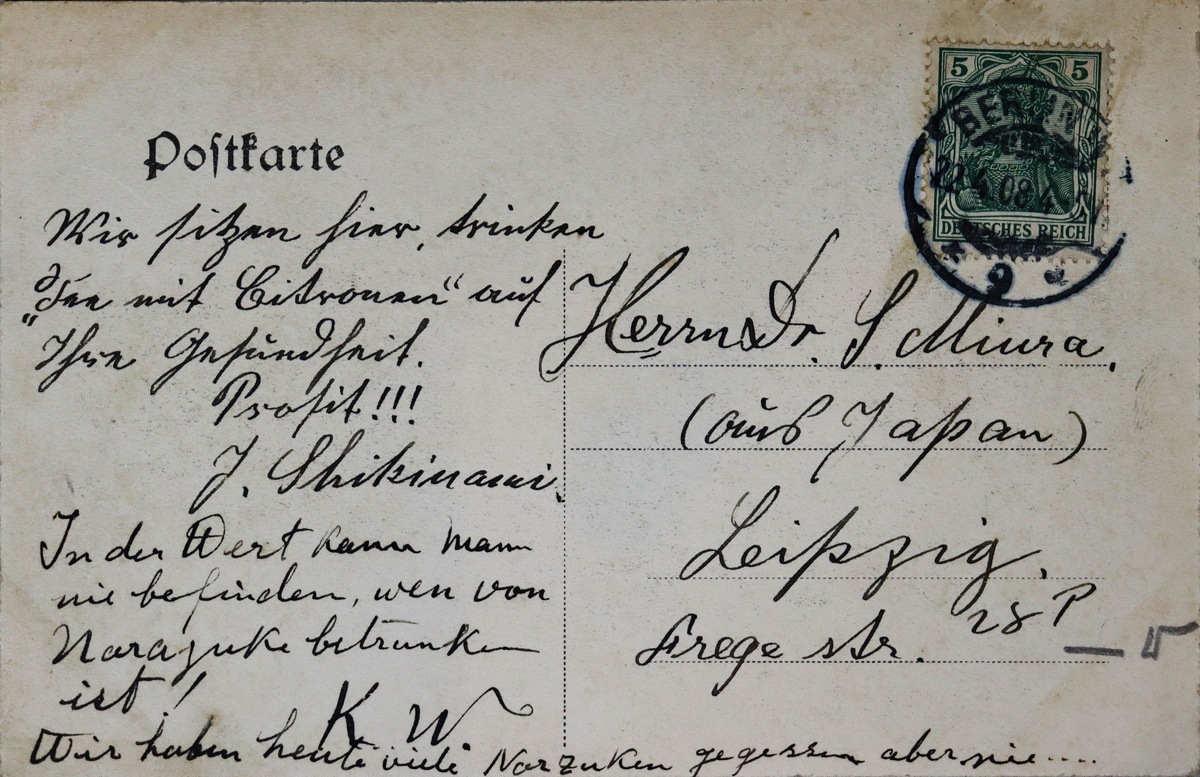 Postkarte
5 5
BERLIN
22.4.08.4
DEUTSCHES REICH
9
Wir sitzen hier, trinken
„Tee mit Citronen“ auf
Ihre Gesundheit.
Prosit!!!
J. Shikinami.
In der Wert kann mann
nie befinden, wen von
Narazuke betrunken
ist!
K W
Wir haben heute viele Narzuken gegessen aber nie....
Herrn Dr. S. Miura.
(aus Japan)
Leipzig.
Frege str. 28